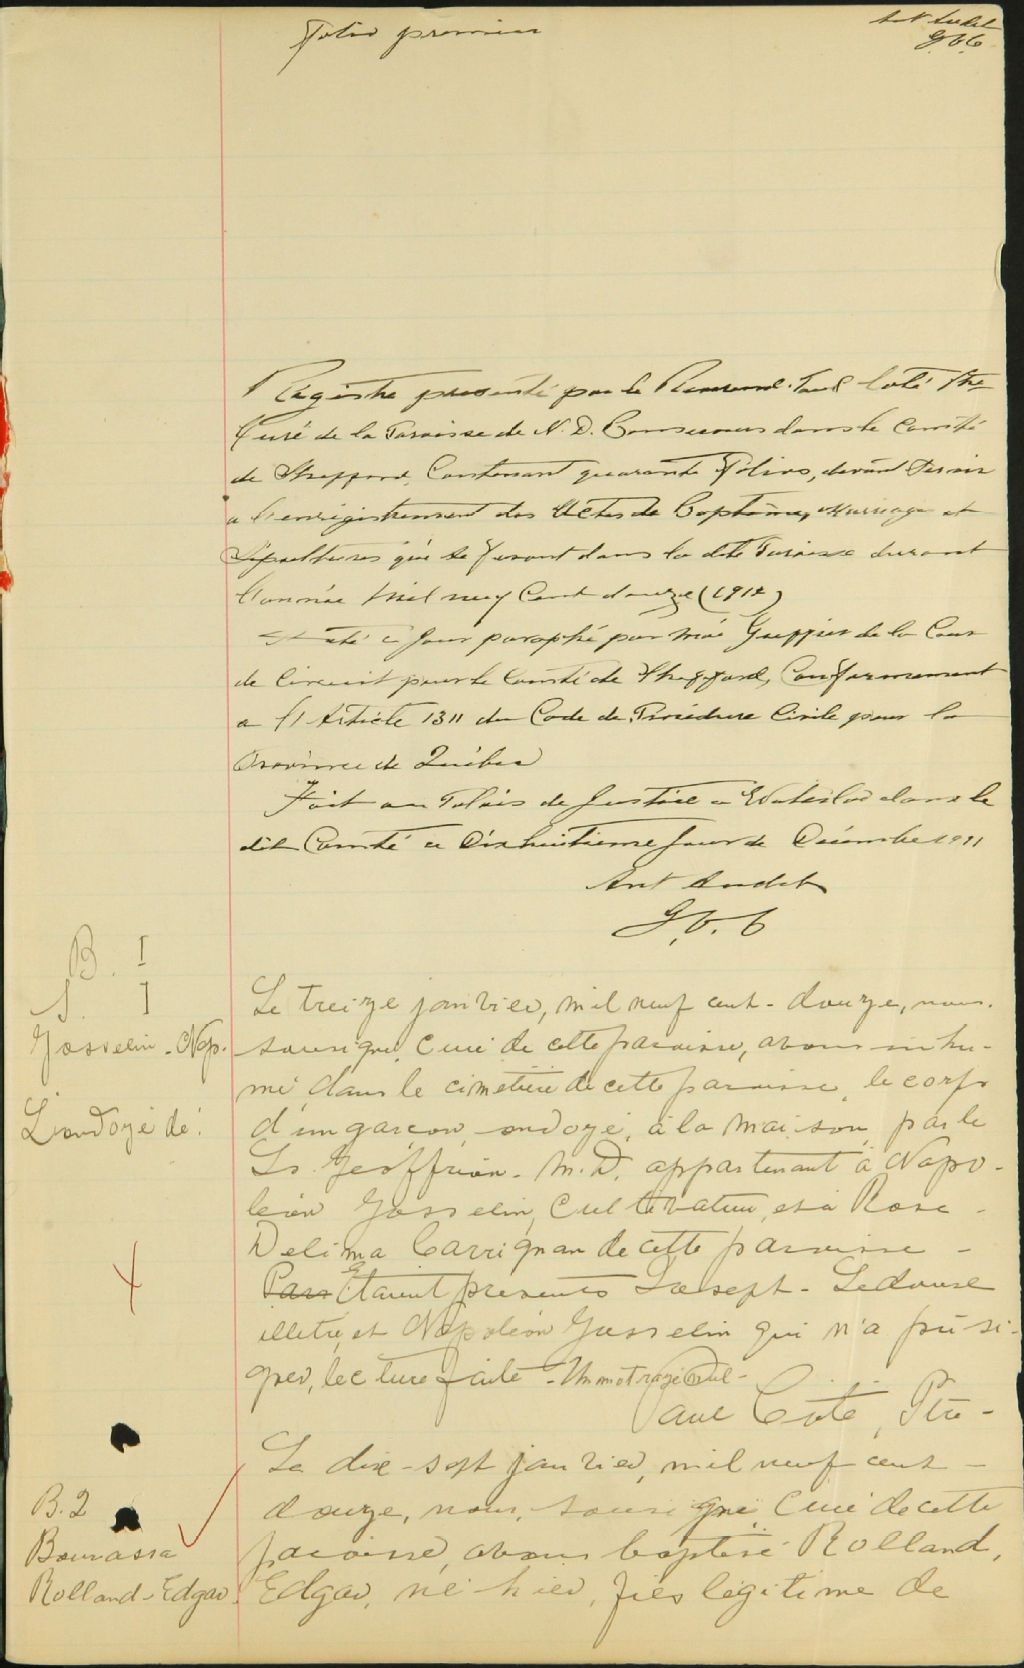 Folio premier
Ant Audet
G.C.C.
Registre presenté par le Reverend Paul Coté Ptre
Curé de la Paroisse de N. D. Bonsecours dans le Comté
de Shefford, Contenant quarante Folios, devant Servir
a l'enrigistrement des Actes de Baptême, Mariage et
Sépultures qui se feront dans la dite Paroisse durant
l'année Mil neuf Cent douze (1912)
a été ce Jour paraphé par moi Greffier de la Cour
de Circuit pour le Comté de Shefford, Conformement
a l'Article 1311 du Code de Procédure Civile pour la
Province de Québec
Fait au Palais de Justice a Waterloo dans le
dit Comté ce Dixhuitieme Jour de Décembre 1911
Ant Audet
G.C.C
B. I
S. I
Gosselin - Nap.
L'ondoyé de:
Le treize janvier, mil neuf cent - douze, nous.
sousigné, Curé de cette paroisse, avons inhu-
mé, dans le cimetière de cette paroisse, le corps
d'un garçon, ondoyé, à la maison, par le
Dr. Geoffrion - M.D. appartenant à Napo-
léon Gosselin, Cultivateur, et à Rose -
Delima Carrignan de cette paroisse -
Pars Etaient presents Joseph - Ledoux
illetré, et Napoléon Gosselin qui n'a pû si-
gner, lecture faite - Un mot rayé nul -
Paul Coté, Ptre -
B. 2
Bourassa
Rolland - Edgar.
Le dix - sept janvier, mil neuf cent -
douze, nous, sousigné, Curé de cette
paroisse, avons baptisé Rolland,
Edgar, né hier, fils légitime de